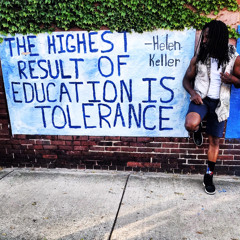 THE HIGHEST
RESULT OF
EDUCATION IS
TOLERANCE
—Helen
Keller